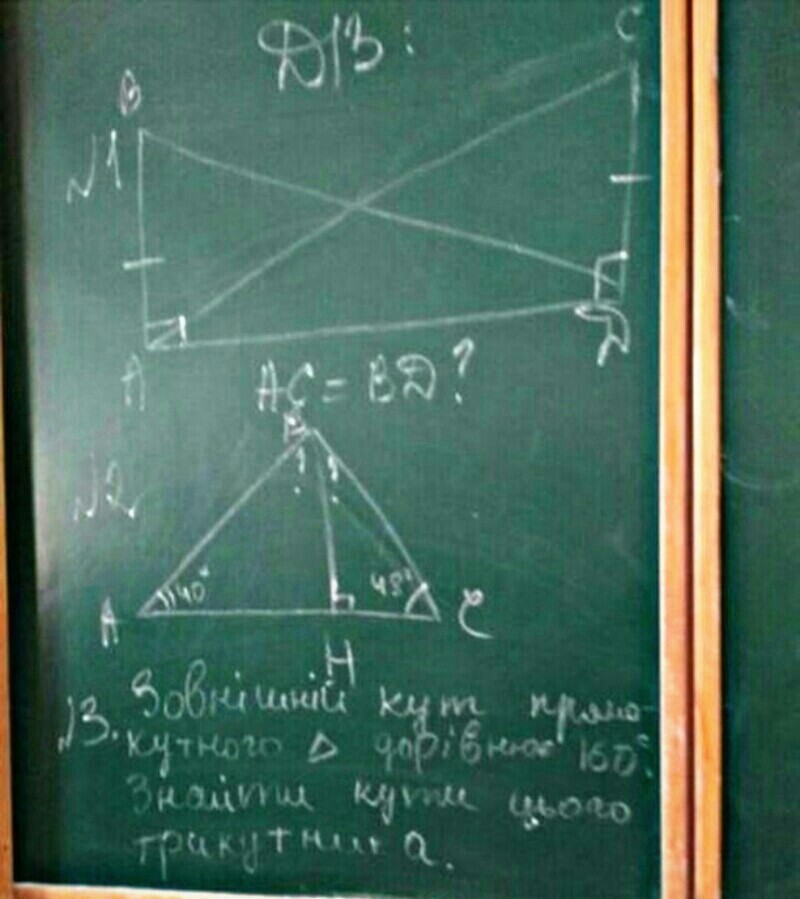 Д/З:
B
C
№1
A
D
AC = BD?
№2
B
? ?
A 40° 48° C
H
№3. Зовнішній кут прямо-
кутного Δ дорівнює 160°.
Знайти кути цього
трикутника.